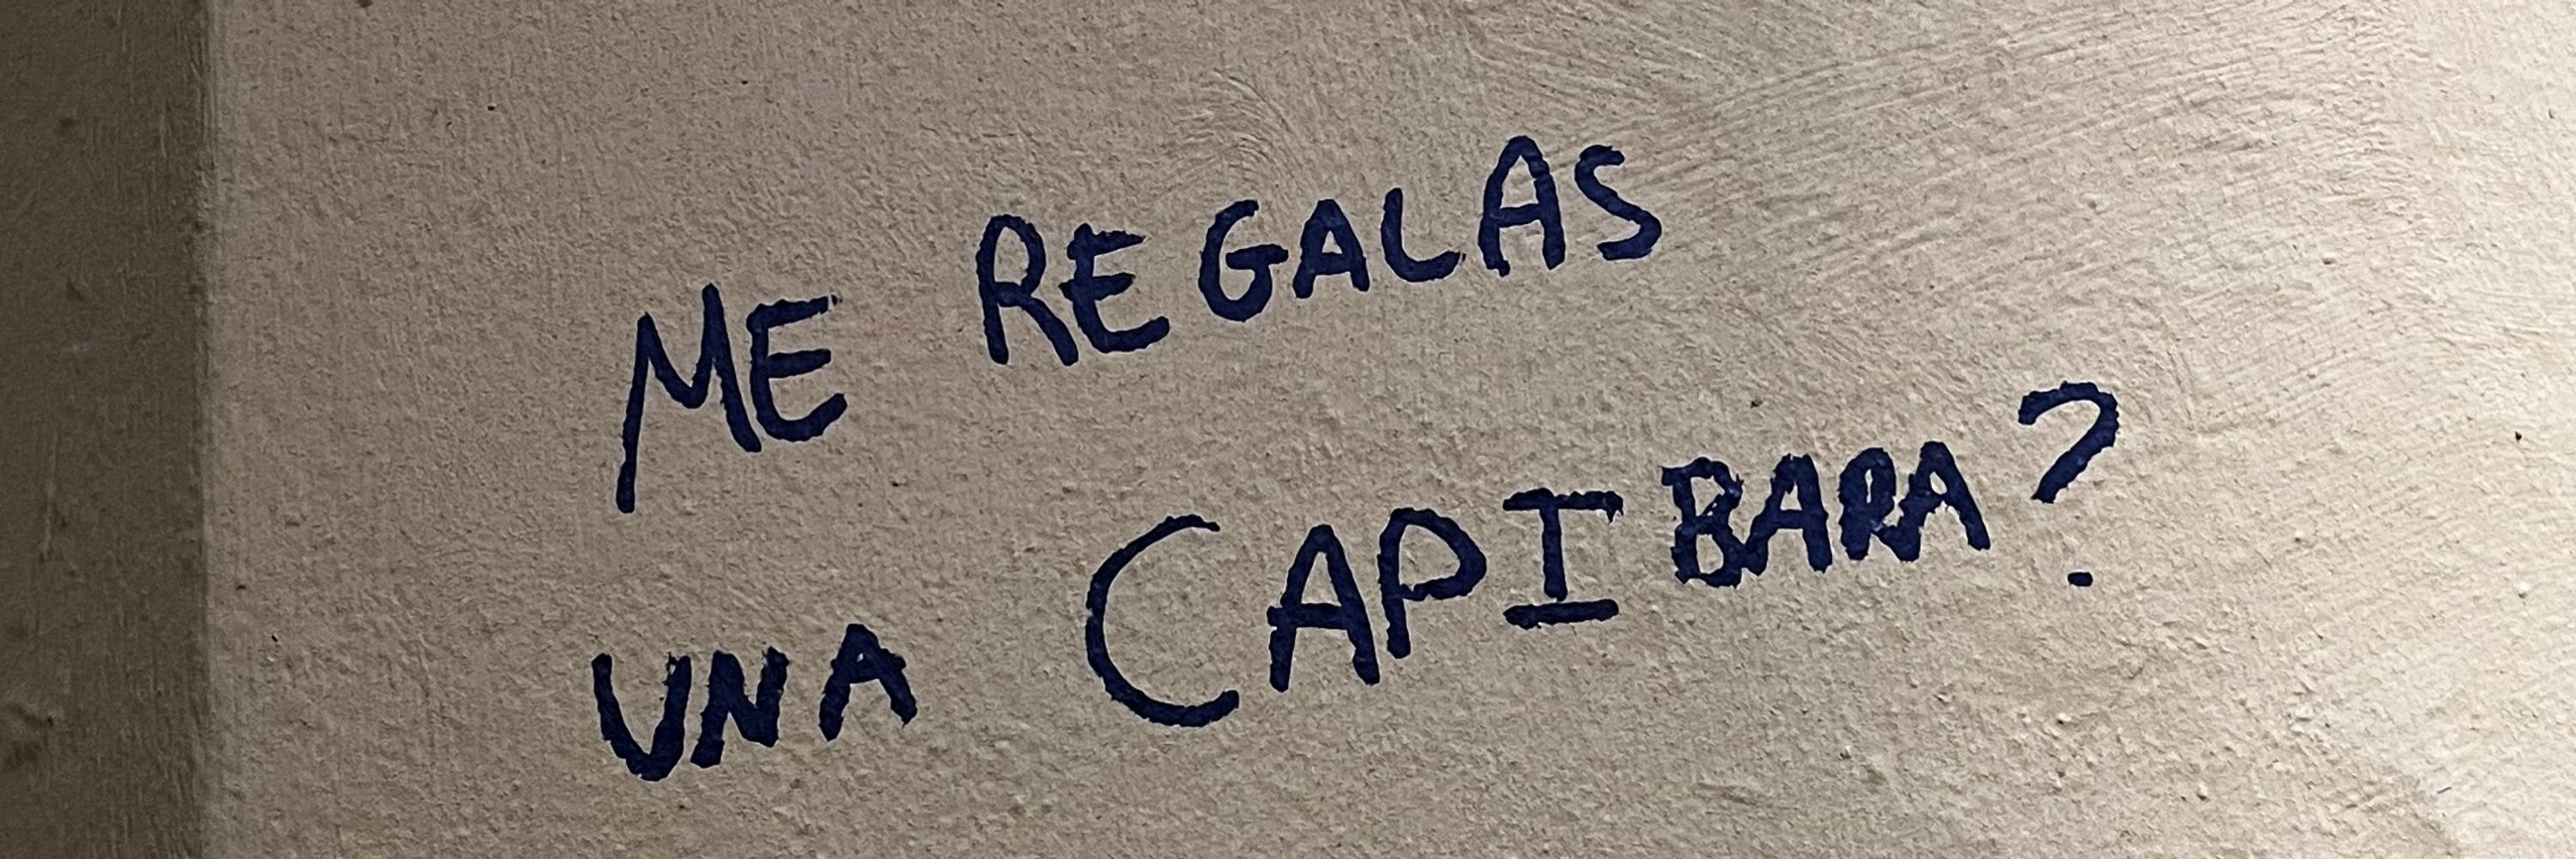 ME REGALAS
UNA CAPIBARA?